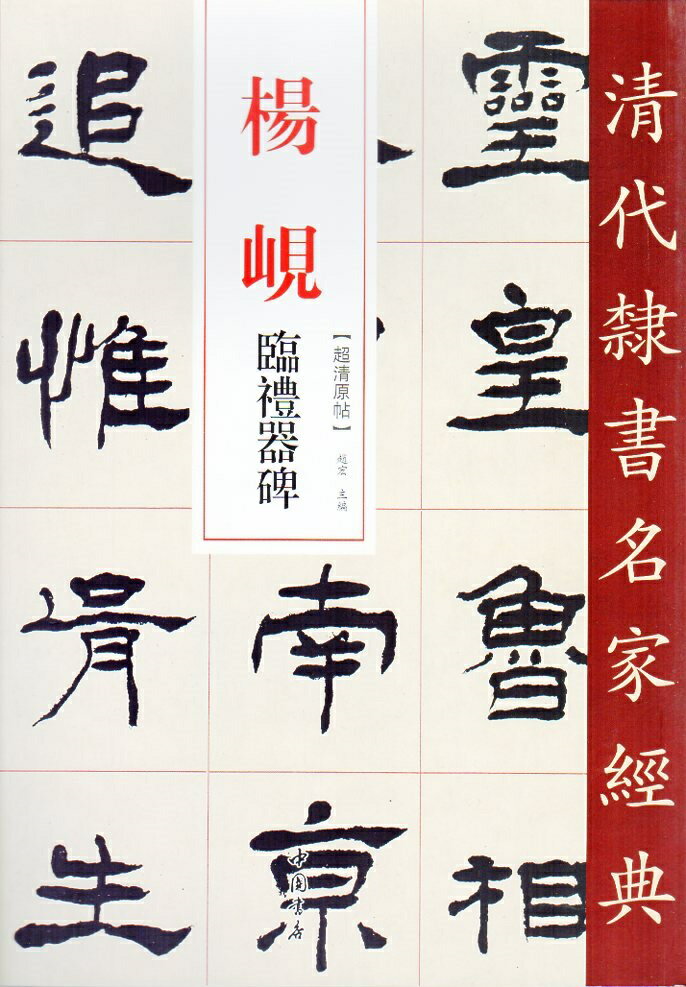 清代隸書名家經典
靈皇魯相
【超清原帖】
趙宏 主編
楊峴
臨禮器碑
南京
中國書店
追惟胥生